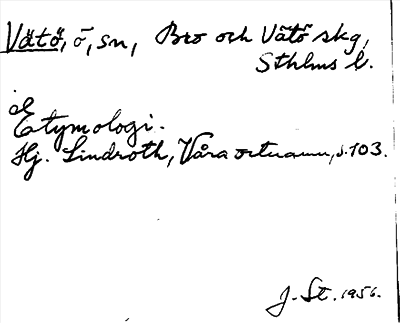 Vätö, ö, sn, Bro och Vätö skg,
Sthlms l.
Etymologi.
Hj. Lindroth, Våra ortnamn, s. 103.
J. St. 1956.